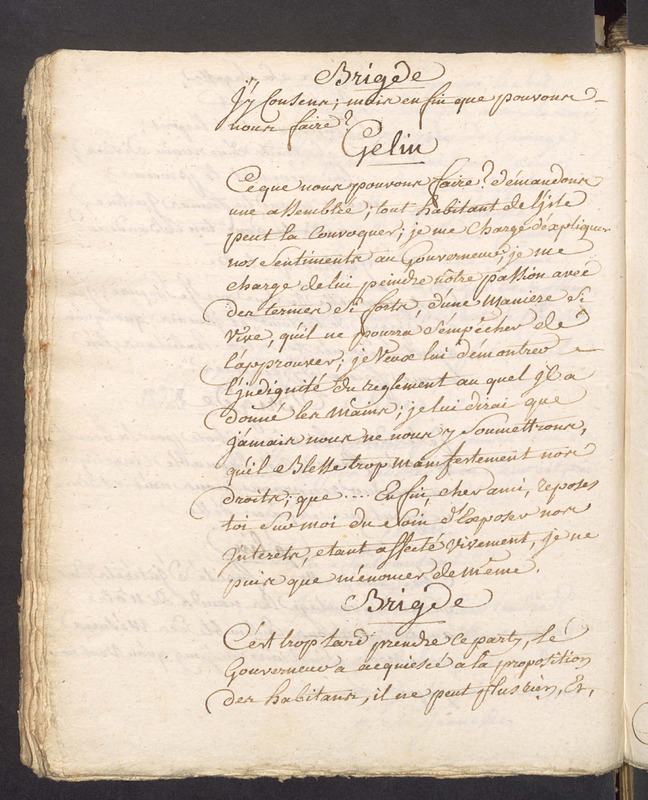 Brigde
J'y Consens; mais enfin que pouvons
nous faire?
Gelin
Ce que nous pouvons faire? démandons
une assemblée; tout habitant de l'isle
peut la Convoquer; je me charge d'éxpliquer
nos sentiments au Gouverneur; je me
charge de lui peindre nôtre passion avec
des termes si forts, d'une maniere si
vive, qu'il ne pourra s'empêcher de
l'approuver; je veux lui démontrer
l'indignité du reglement au quel il a
donné les mains; je lui dirai que
jamais nous ne nous y soumettrons,
qu'il blesse trop manifestement nos
droits; que .... Enfin, cher ami, reposes
toi sur moi du soin d'exposer nos
interets, etant affecté vivement, je ne
puis que m'énoncer de même.
Brigde
C'est trop tard prendre ce parti, le
Gouverneur a acquiescé a la proposition
des habitans, il ne peut plus rien, Et,